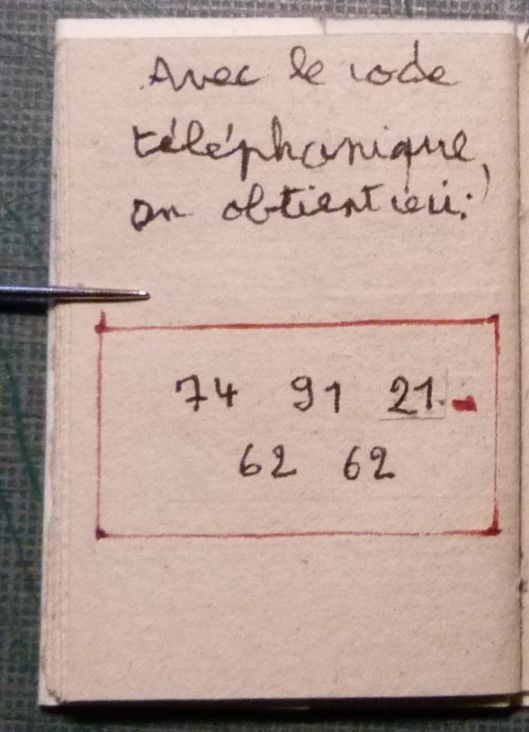 Avec le code
téléphonique,
on obtient ceci:
74 91 21
62 62